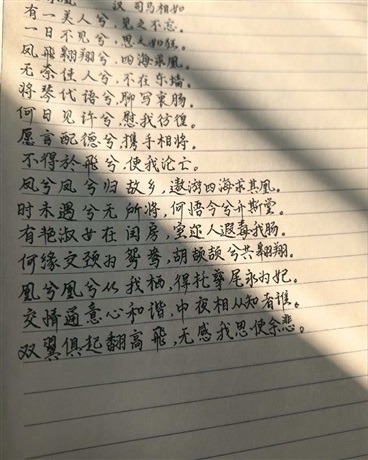 求凰 汉 司马相如
有一美人兮，见之不忘。
一日不见兮，思之如狂。
凤飞翱翔兮，四海求凰。
无奈佳人兮，不在东墙。
将琴代语兮，聊写衷肠。
何日见许兮，慰我彷徨。
愿言配德兮，携手相将。
不得於飞兮，使我沦亡。
凤兮凤兮归故乡，遨游四海求其凰。
时未遇兮无所将，何悟今兮升斯堂。
有艳淑女在闺房，室迩人遐毒我肠。
何缘交颈为鸳鸯，胡颉颃兮共翱翔。
凰兮凰兮从我栖，得托孳尾永为妃。
交情通意心和谐，中夜相从知者谁。
双翼俱起翻高飞，无感我思使余悲。